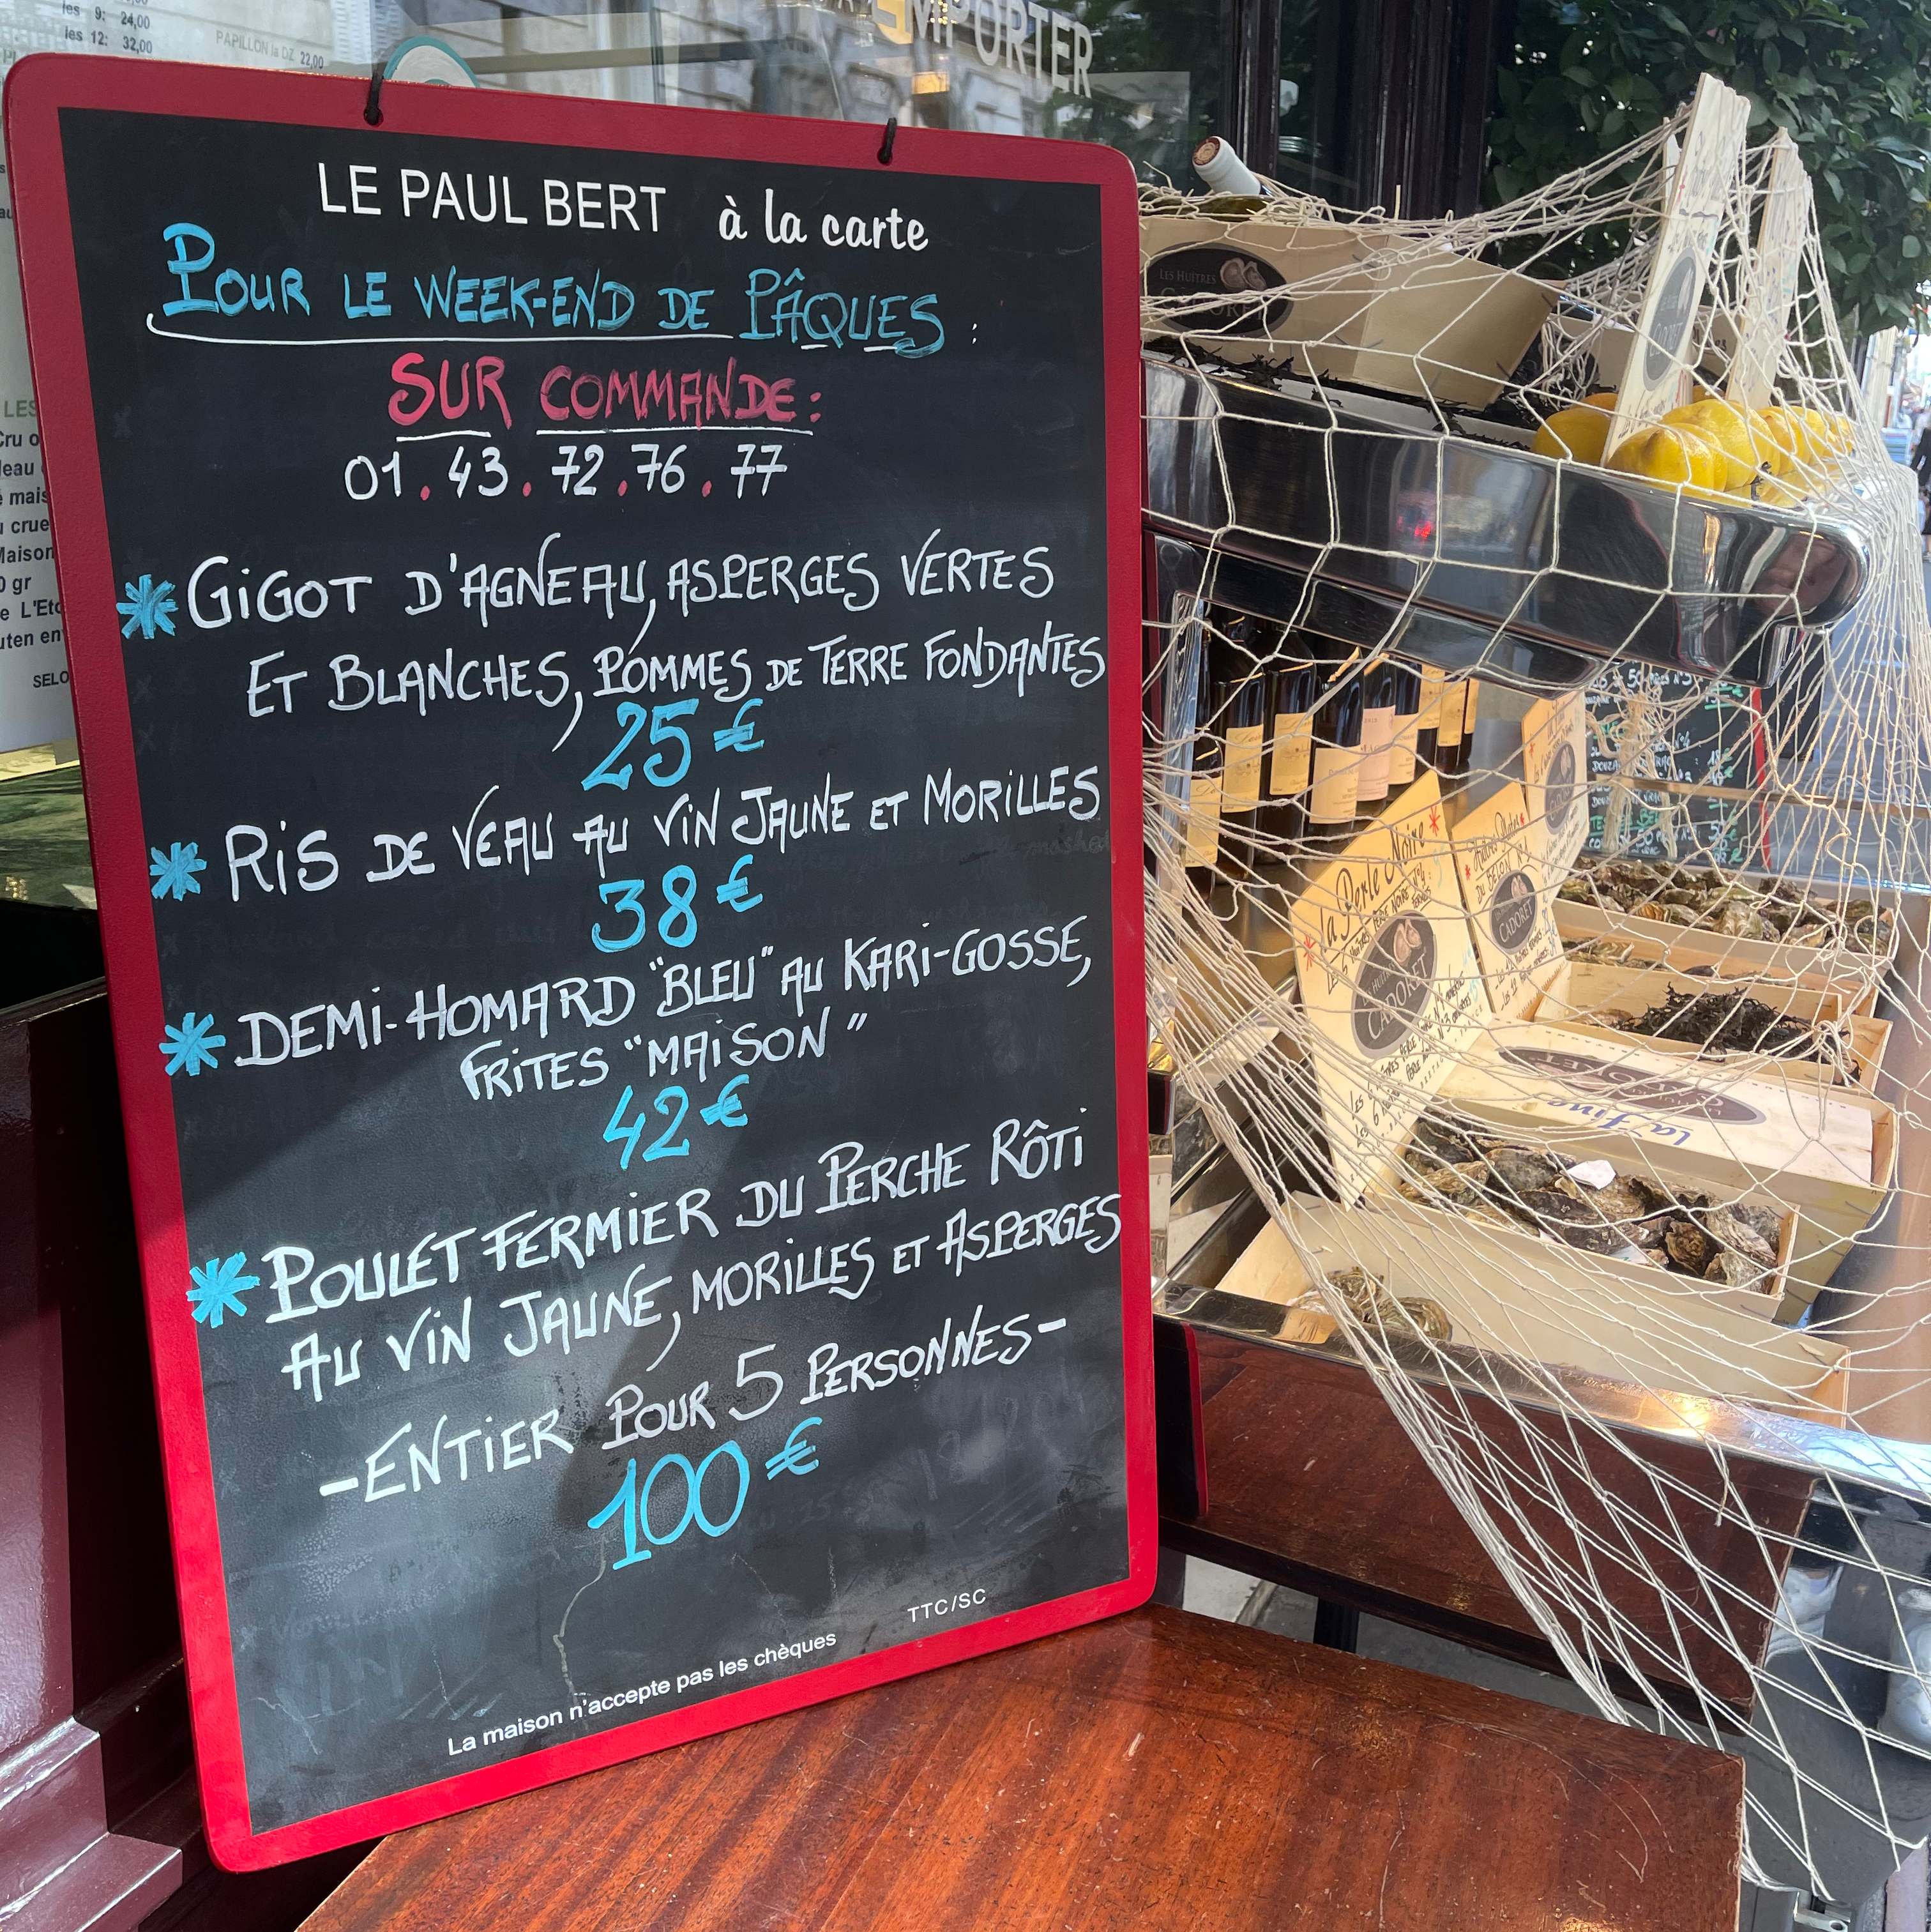 les 9: 24,00
les 12: 32,00
PAPILLON la DZ 22,00
EMPORTER
LE PAUL BERT à la carte
POUR LE WEEK-END DE PÂQUES :
SUR COMMANDE :
01.43.72.76.77
* GIGOT D'AGNEAU, ASPERGES VERTES
ET BLANCHES, POMMES DE TERRE FONDANTES
25€
* RIS DE VEAU AU VIN JAUNE ET MORILLES
38€
* DEMI-HOMARD "BLEU" AU KARI-GOSSE,
FRITES "MAISON"
42€
* POULET FERMIER DU PERCHE RÔTI
AU VIN JAUNE, MORILLES ET ASPERGES
-ENTIER POUR 5 PERSONNES-
100€
TTC/SC
La maison n'accepte pas les chèques
LES HUÎTRES
CADORET
la Perle Noire
CADORET
DU BELON
CADORET
la fine